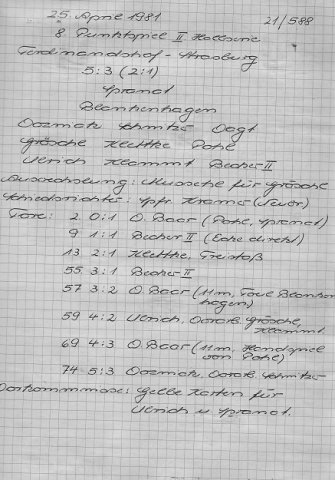 25. April 1981 21/588
8 Punktspiel II Halbserie
Ferdinandshof - Strasburg
5:3 (2:1)
Spranat
Blankenhagen
Dozmatz Schmitz Vogt
Grösche Klettke Pohl
Ulrich Klammt Becher II
Auswechslung: Muosche für Grösche
Schiedsrichter: Spfr. Kramer
Tore: 2 0:1 O. Baar (Pohl, Spranat)
9 1:1 Becher II (Ecke direkt)
13 2:1 Klettke, Freistoß
55 3:1 Becher II
57 3:2 O. Baar (11m, Foul Blanken
hagen)
59 4:2 Ulrich, Vorarb. Grösche,
Klammt
69 4:3 O. Baar (11m, Handspiel
von Pohl)
74 5:3 Dozmatz, Vorarb. Schmitz
Vorkommnisse: Gelbe Karten für
Ulrich u. Spranat.